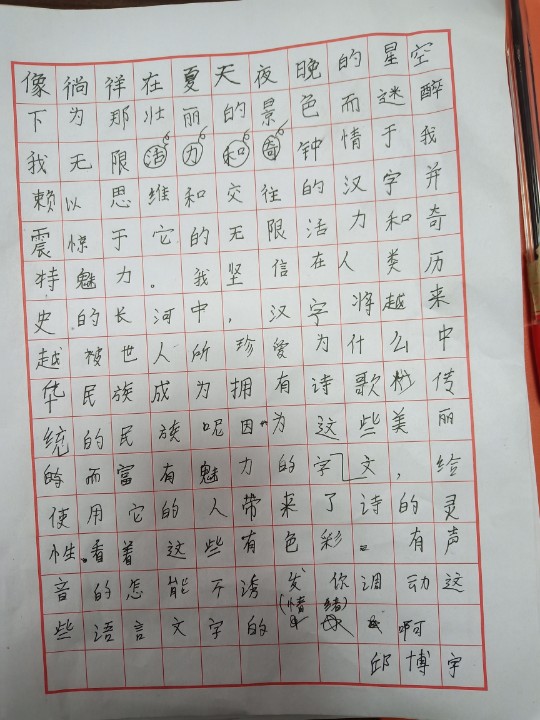 像徜徉在夏天夜晚的星空
下为那壮丽的景色而迷醉
我无限活力和奇钟情于我
赖以思维和交往的汉字并
震惊于它的无限活力和奇
特魅力。我坚信在人类历
史的长河中,汉字将越来
越被世人所珍爱为什么中
华民族成为拥有诗歌传
统的民族呢因为这些美丽
的而富有魅力的字文,给
使用它的人带来了诗的灵
性。看着这些有色彩。有声
音的怎能不诱发你调动这
些语言文字的(情绪)啊
邱博宇